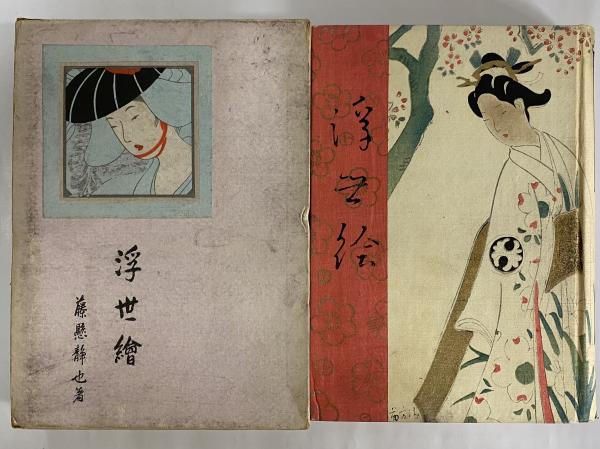 浮世繪
藤懸静也著
浮世絵